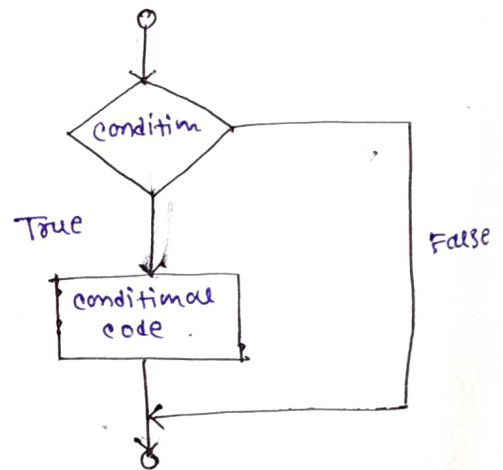 condition
True
False
conditional
code